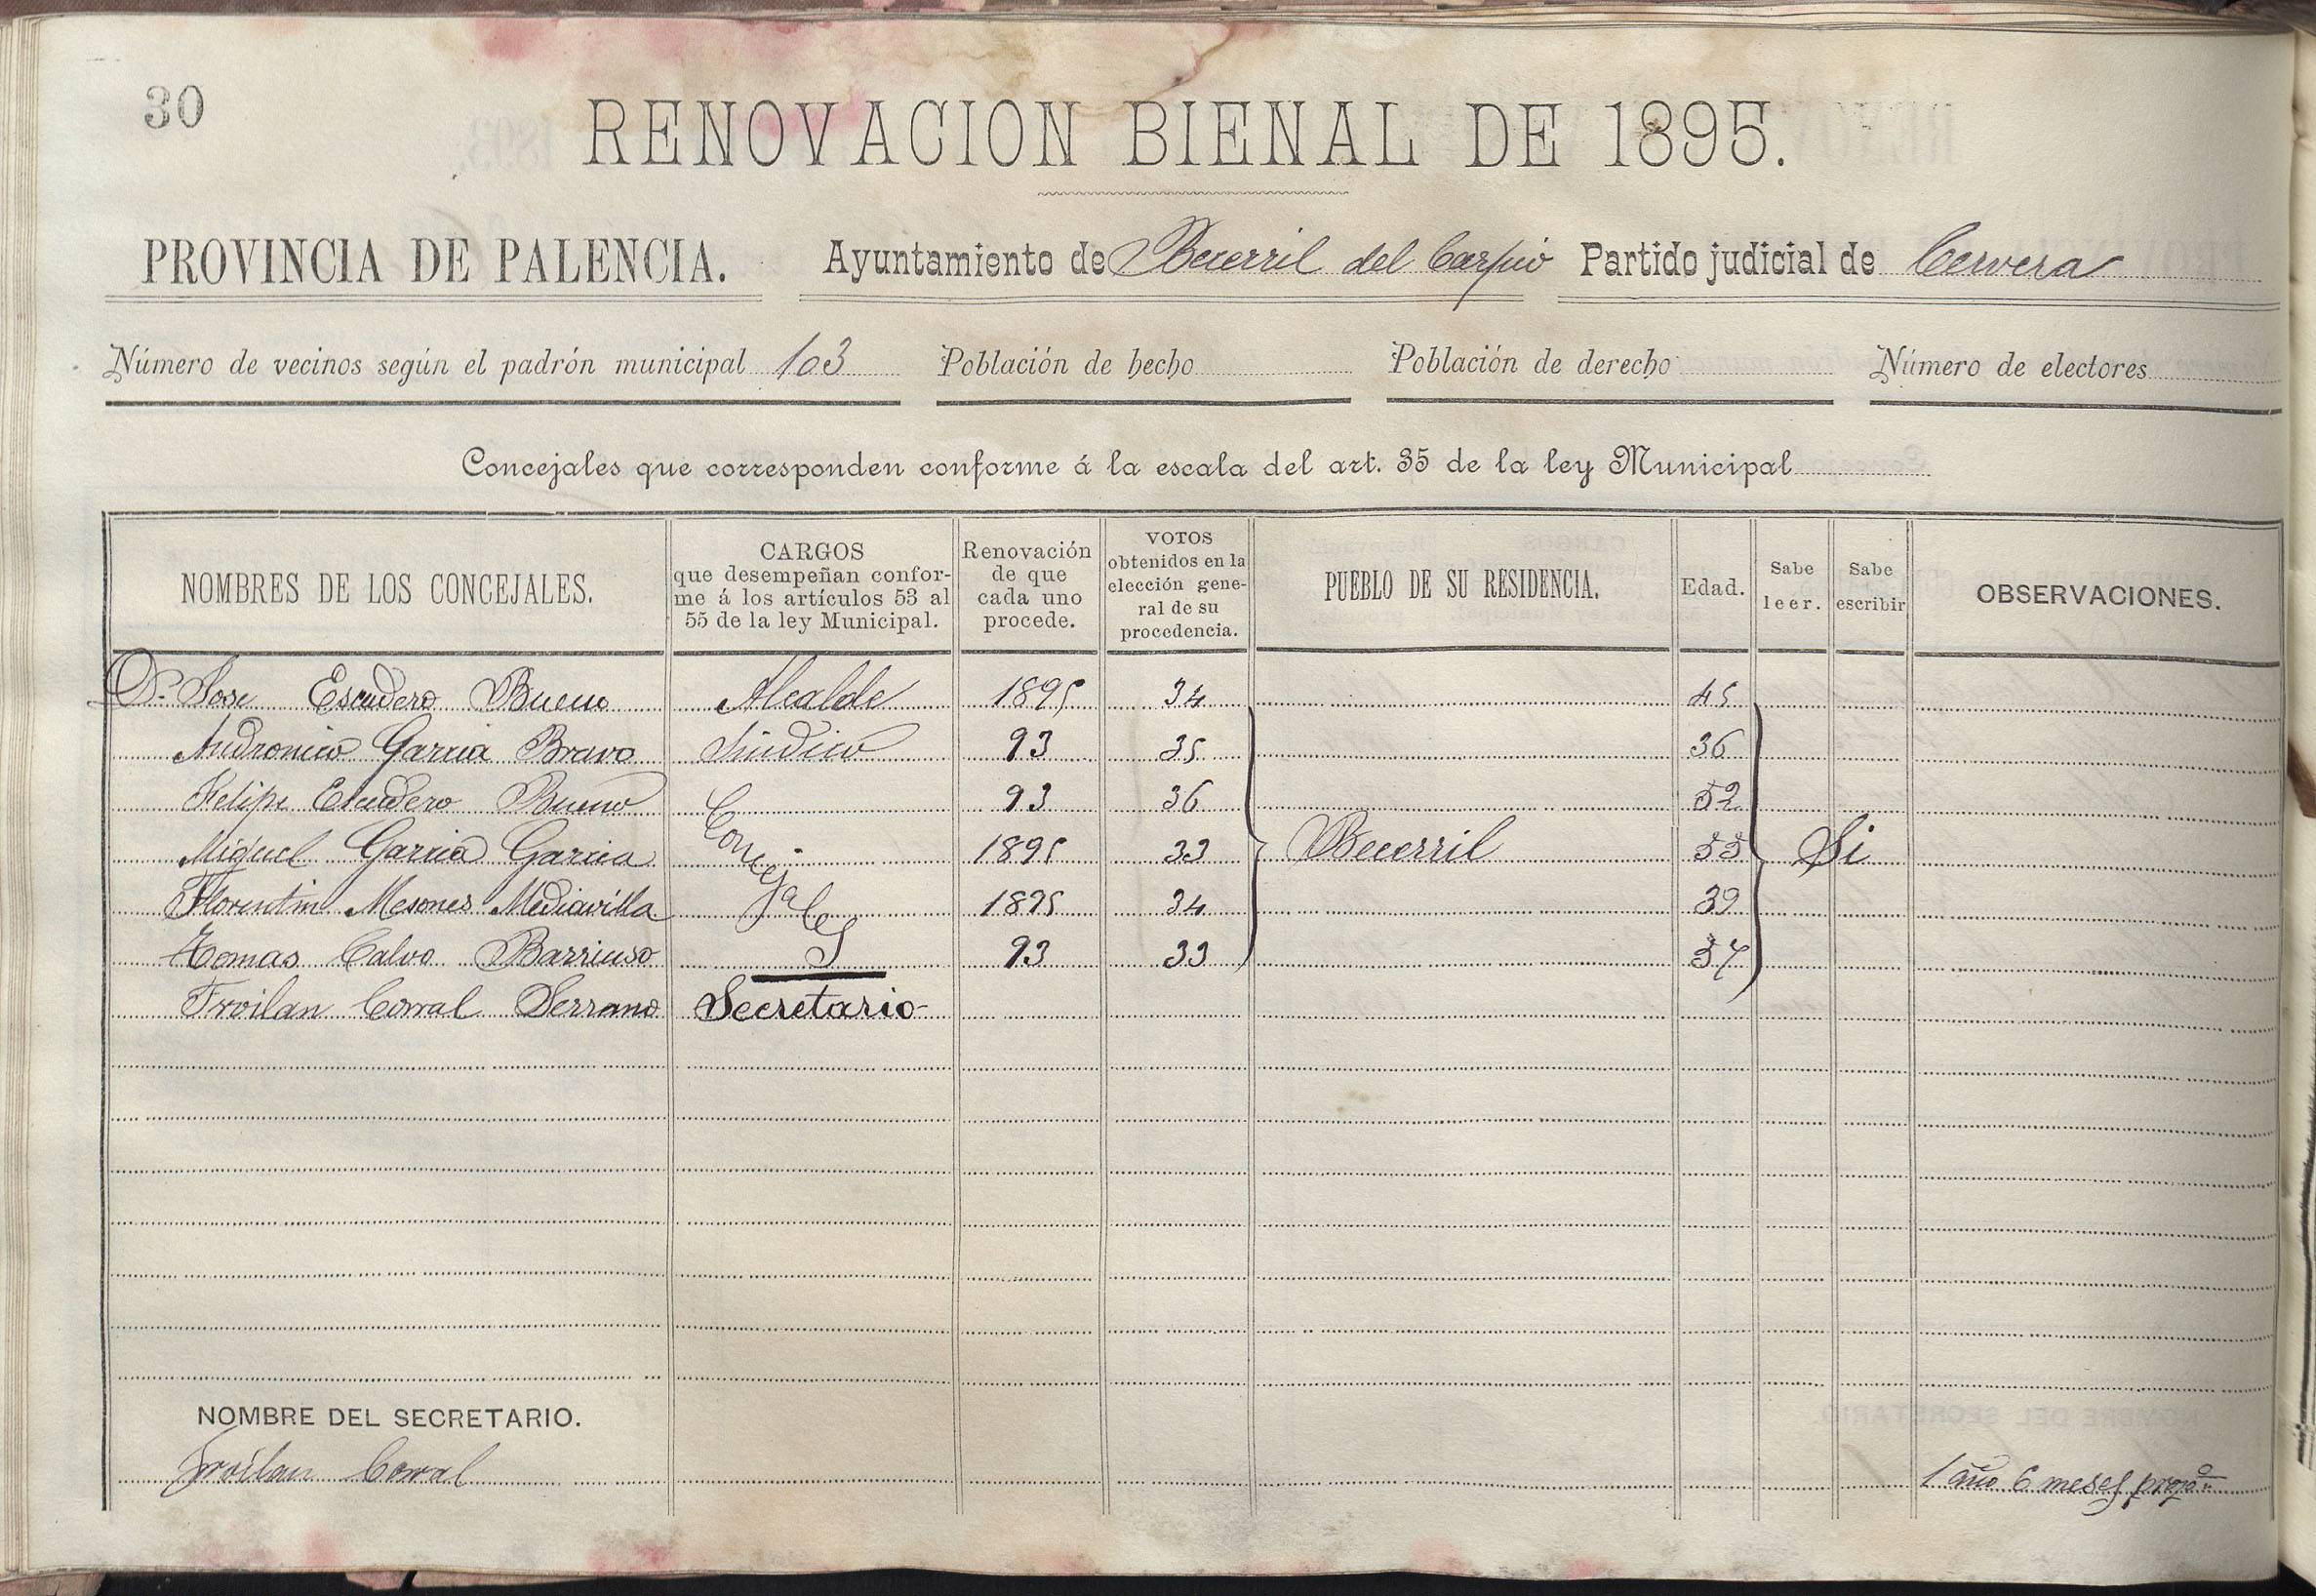 30
RENOVACION BIENAL DE 1895.
PROVINCIA DE PALENCIA. Ayuntamiento de Becerril del Carpio Partido judicial de Cervera
Número de vecinos según el padrón municipal 103 Población de hecho Población de derecho Número de electores
Concejales que corresponden conforme á la escala del art. 35 de la ley Municipal
NOMBRES DE LOS CONCEJALES. CARGOS que desempeñan confor-me á los artículos 53 al 55 de la ley Municipal. Renovación de que cada uno procede. VOTOS obtenidos en la elección gene-ral de su procedencia. PUEBLO DE SU RESIDENCIA. Edad. Sabe leer. Sabe escribir OBSERVACIONES.
Dn. Jose Escudero Bueno Alcalde 1895 34 45
Andronico Garcia Bravo Sindico 93 35 36
Felipe Escudero Bueno Concejales 93 36 52
Miguel Garcia Garcia 1895 33 Becerril 55 Si
Florentin Mesones Mediavilla 1895 34 39
Tomas Calvo Barriuso 93 33 37
Froilan Corral Serrano Secretario
NOMBRE DEL SECRETARIO.
Froilan Corral 1 año 6 meses